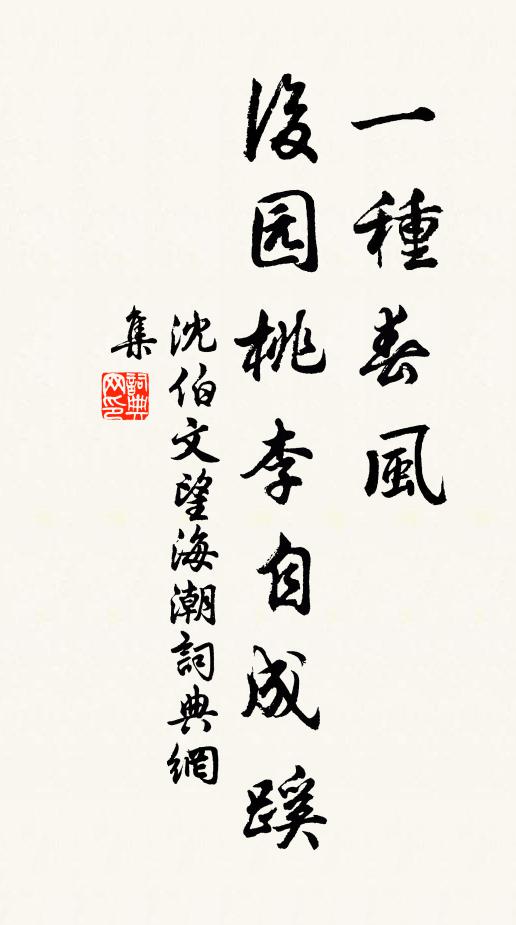 一種春風
後园桃李自成蹊
沈伯文望海潮詞典網
集
詞典
网印